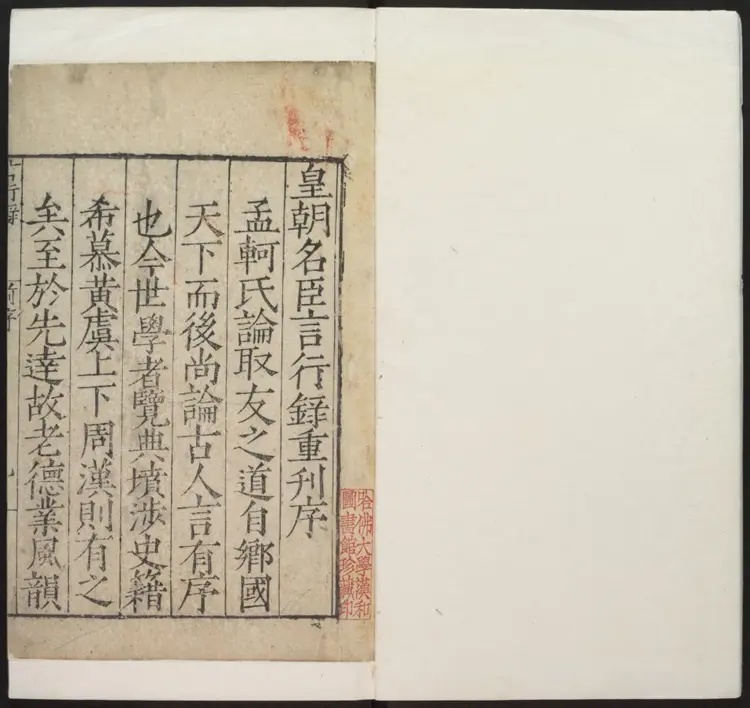 皇朝名臣言行錄重刋序
孟軻氏論取友之道自鄉國
天下而後尚論古人言有序
也今世學者覽典墳涉史籍
希慕黃虞上下周漢則有之
矣至於先達故老德業風韻
哈佛大學漢和
圖書館珍藏印